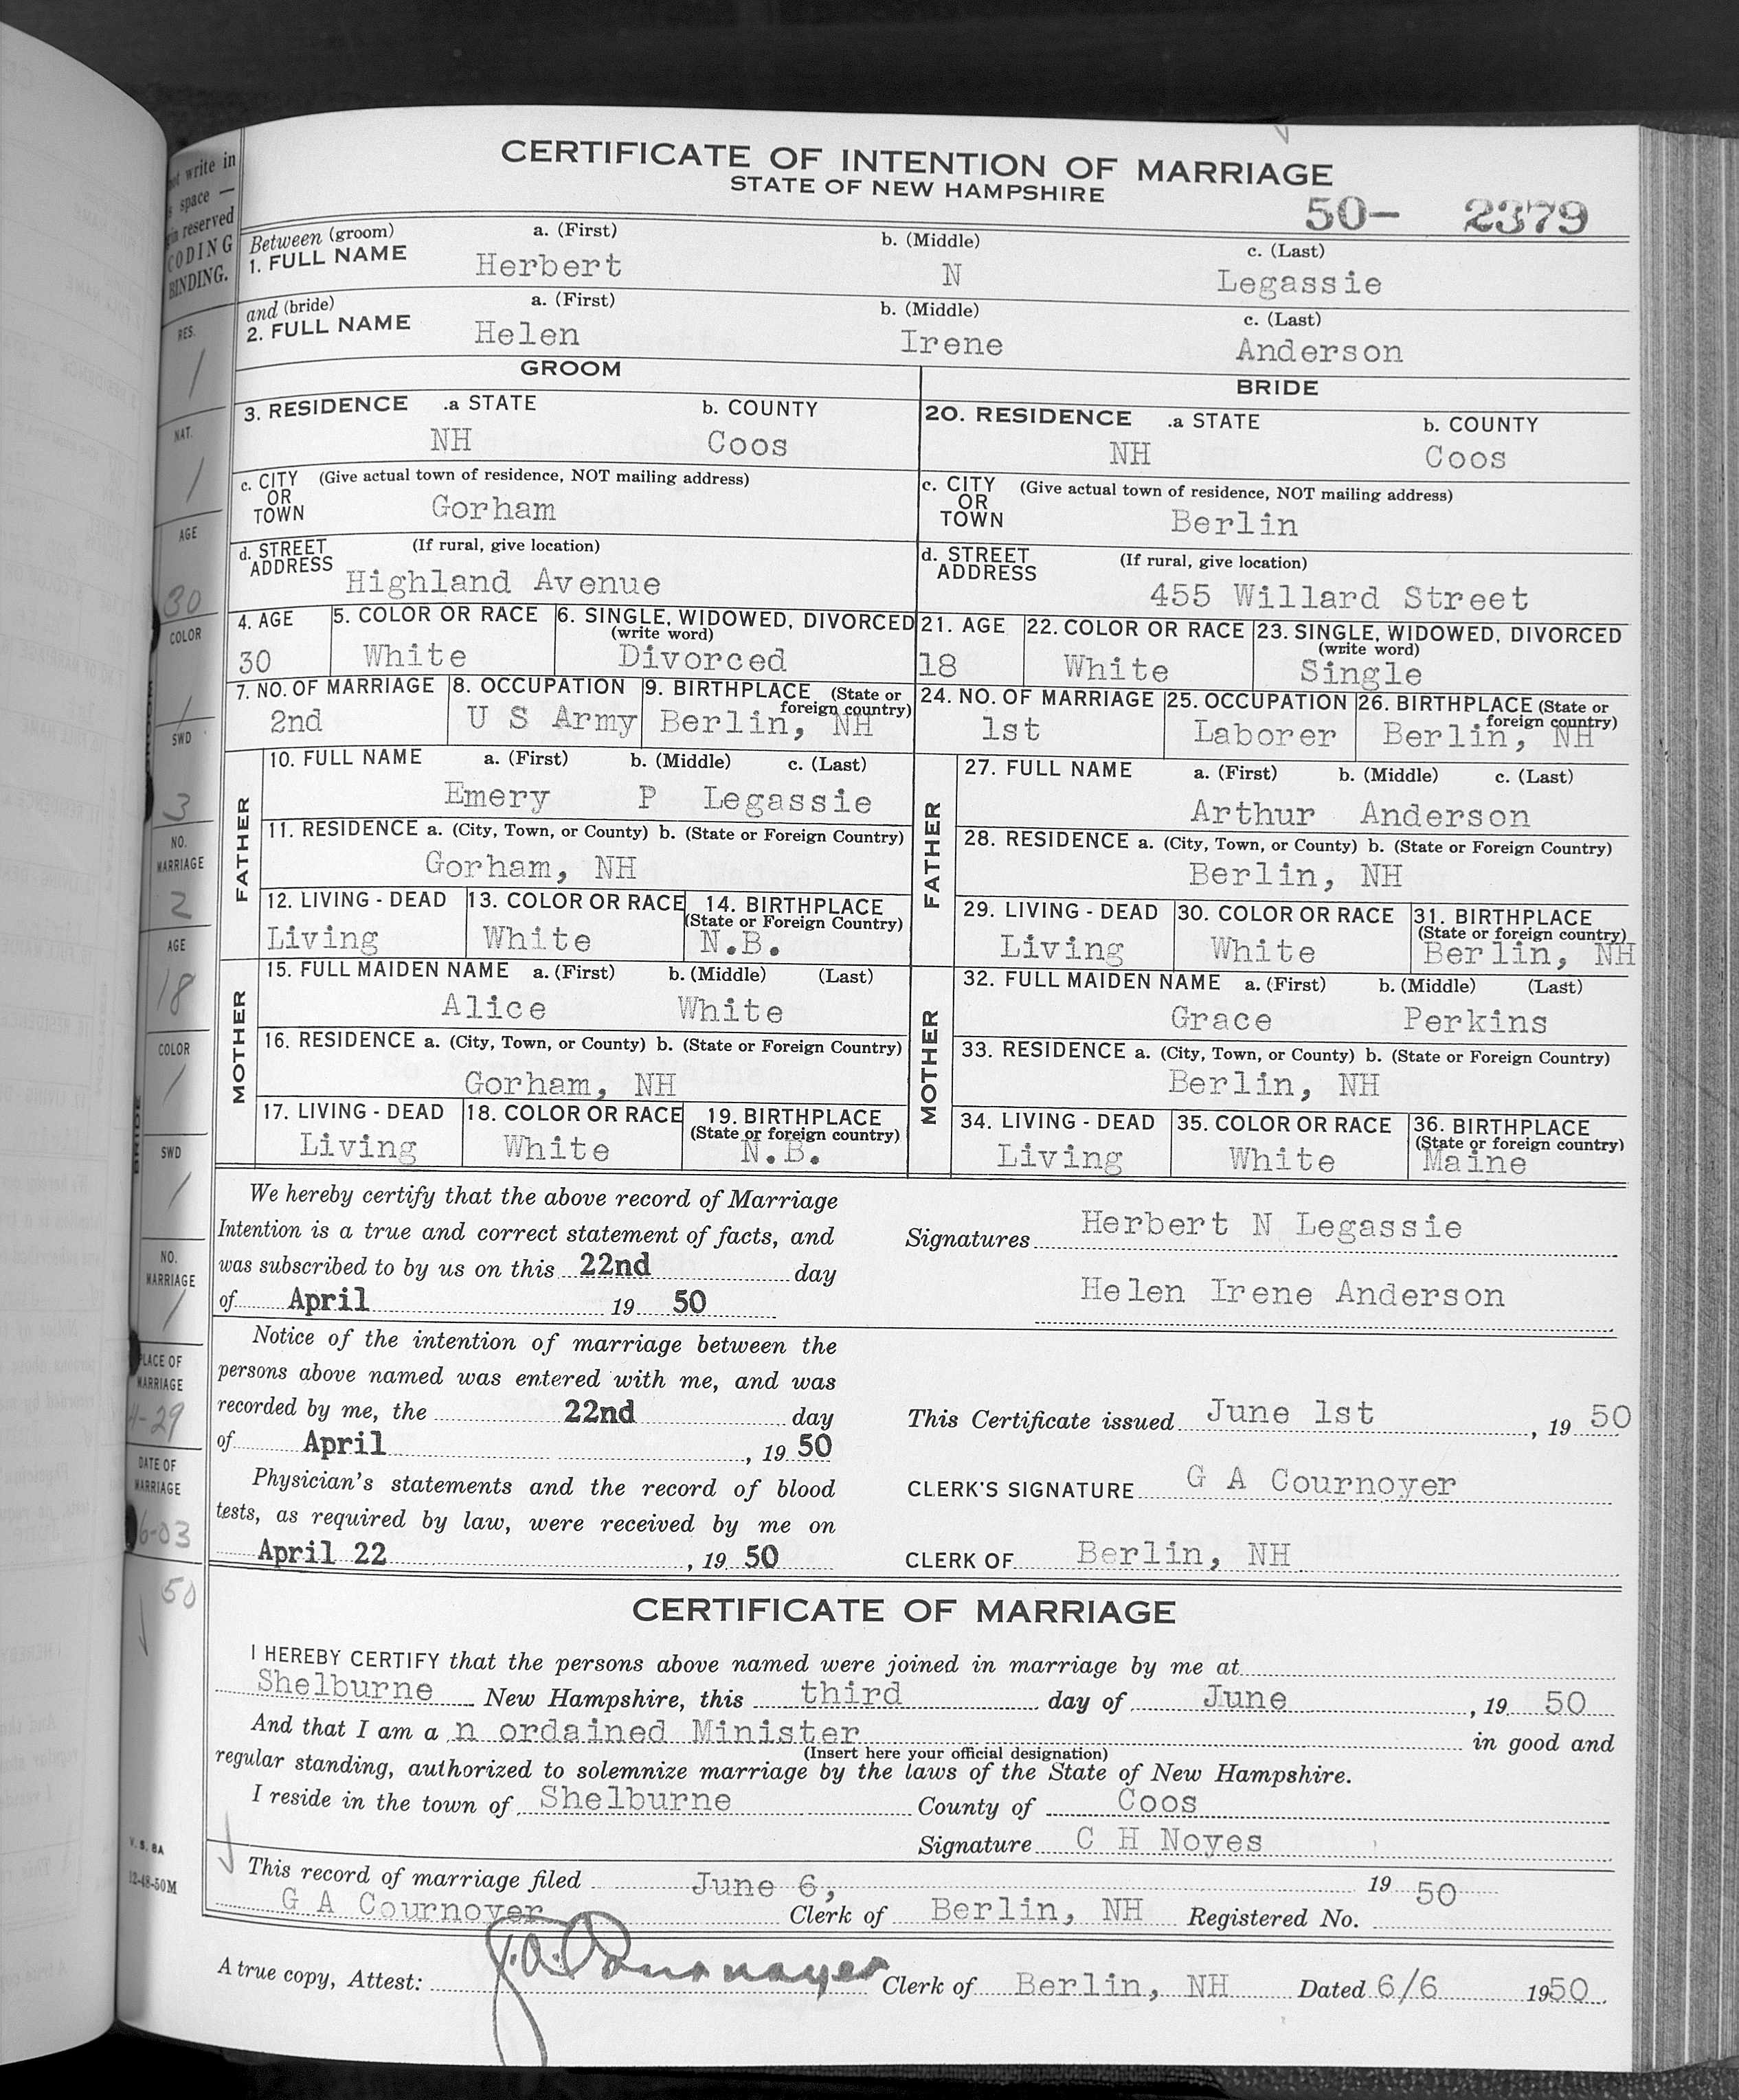 CERTIFICATE OF INTENTION OF MARRIAGE
STATE OF NEW HAMPSHIRE
50- 2379
not write in
space —
reserved
CODING
BINDING.
Between (groom) a. (First) b. (Middle) c. (Last)
1. FULL NAME Herbert N Legassie
and (bride) a. (First) b. (Middle) c. (Last)
2. FULL NAME Helen Irene Anderson
GROOM BRIDE
3. RESIDENCE .a STATE b. COUNTY 20. RESIDENCE .a STATE b. COUNTY
NH Coos NH Coos
c. CITY OR TOWN (Give actual town of residence, NOT mailing address) c. CITY OR TOWN (Give actual town of residence, NOT mailing address)
Gorham Berlin
d. STREET ADDRESS (If rural, give location) d. STREET ADDRESS (If rural, give location)
Highland Avenue 455 Willard Street
4. AGE 5. COLOR OR RACE 6. SINGLE, WIDOWED, DIVORCED (write word) 21. AGE 22. COLOR OR RACE 23. SINGLE, WIDOWED, DIVORCED (write word)
30 White Divorced 18 White Single
7. NO. OF MARRIAGE 8. OCCUPATION 9. BIRTHPLACE (State or foreign country) 24. NO. OF MARRIAGE 25. OCCUPATION 26. BIRTHPLACE (State or foreign country)
2nd U S Army Berlin, NH 1st Laborer Berlin, NH
FATHER 10. FULL NAME a. (First) b. (Middle) c. (Last) FATHER 27. FULL NAME a. (First) b. (Middle) c. (Last)
Emery P Legassie Arthur Anderson
11. RESIDENCE a. (City, Town, or County) b. (State or Foreign Country) 28. RESIDENCE a. (City, Town, or County) b. (State or Foreign Country)
Gorham, NH Berlin, NH
12. LIVING - DEAD 13. COLOR OR RACE 14. BIRTHPLACE (State or Foreign Country) 29. LIVING - DEAD 30. COLOR OR RACE 31. BIRTHPLACE (State or foreign country)
Living White N.B. Living White Berlin, NH
MOTHER 15. FULL MAIDEN NAME a. (First) b. (Middle) (Last) MOTHER 32. FULL MAIDEN NAME a. (First) b. (Middle) (Last)
Alice White Grace Perkins
16. RESIDENCE a. (City, Town, or County) b. (State or Foreign Country) 33. RESIDENCE a. (City, Town, or County) b. (State or Foreign Country)
Gorham, NH Berlin, NH
17. LIVING - DEAD 18. COLOR OR RACE 19. BIRTHPLACE (State or foreign country) 34. LIVING - DEAD 35. COLOR OR RACE 36. BIRTHPLACE (State or foreign country)
Living White N.B. Living White Maine
RES.
1
NAT.
1
AGE
30
COLOR
1
SWD
3
NO. MARRIAGE
2
AGE
18
COLOR
1
BRIDE
SWD
1
NO. MARRIAGE
1
PLACE OF MARRIAGE
4-29
DATE OF MARRIAGE
6-03
50
We hereby certify that the above record of Marriage
Intention is a true and correct statement of facts, and
was subscribed to by us on this 22nd day
of April 19 50
Signatures Herbert N Legassie
Helen Irene Anderson
Notice of the intention of marriage between the
persons above named was entered with me, and was
recorded by me, the 22nd day
of April, 19 50
Physician's statements and the record of blood
tests, as required by law, were received by me on
April 22, 19 50
This Certificate issued June 1st, 19 50
CLERK'S SIGNATURE G A Cournoyer
CLERK OF Berlin, NH
CERTIFICATE OF MARRIAGE
I HEREBY CERTIFY that the persons above named were joined in marriage by me at
Shelburne New Hampshire, this third day of June, 19 50
And that I am a n ordained Minister in good and
(Insert here your official designation)
regular standing, authorized to solemnize marriage by the laws of the State of New Hampshire.
I reside in the town of Shelburne County of Coos
Signature C H Noyes
V. S. 8A
12-48-50M
This record of marriage filed June 6, 19 50
G A Cournoyer Clerk of Berlin, NH Registered No.
A true copy, Attest: G. A. Cournoyer Clerk of Berlin, NH Dated 6/6 1950